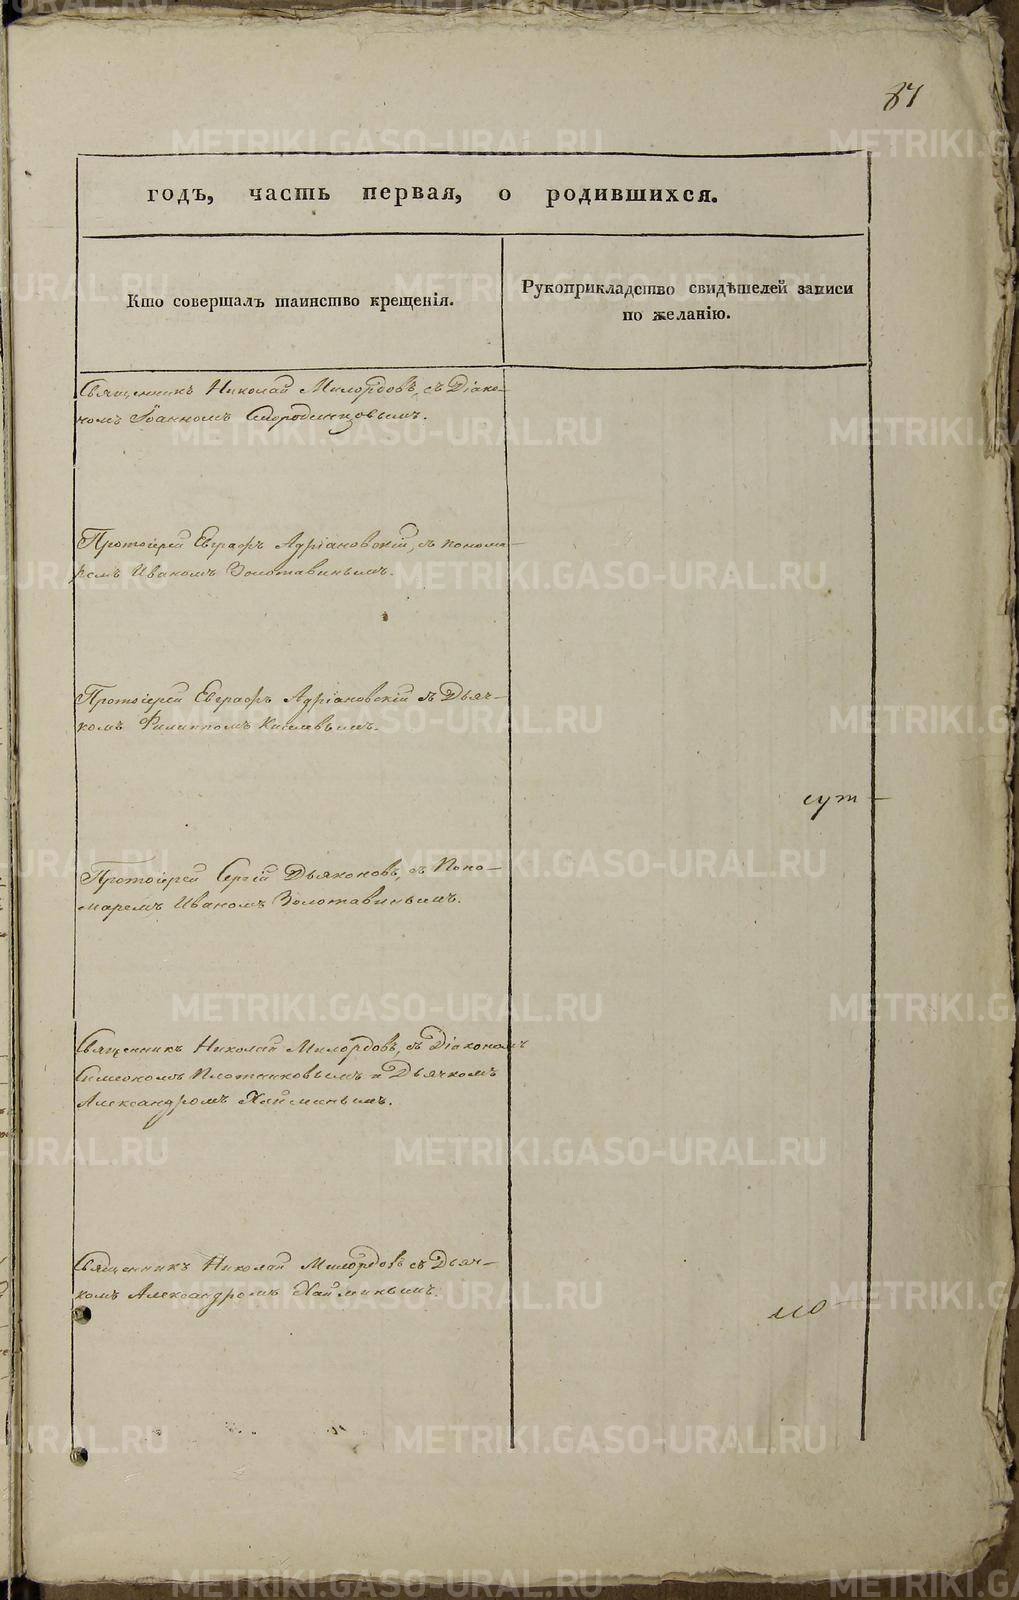 87
годъ, часть первая, о родившихся.
Кто совершалъ таинство крещенія.
Рукоприкладство свидѣтелей записи
по желанію.
Священникъ Николай Милордовъ, съ Діако-
номъ Іоанномъ Смородинцовымъ.
Протоіерей Евграфъ Адріановскій, съ понома-
ремъ Иваномъ Золотавинымъ.
Протоіерей Евграфъ Адріановскій съ Дьяч-
комъ Филиппомъ Киселевымъ.
сут-
Протоіерей Сергій Дьяконовъ, съ Поно-
маремъ Иваномъ Золотавинымъ.
Священникъ Николай Милордовъ, съ Діакономъ
Симеономъ Плотниковымъ и Дьячкомъ
Александромъ Хайминымъ.
Священникъ Николай Милордовъ съ Дьяч-
комъ Александромъ Хайминымъ.
METRIKI.GASO-URAL.RU